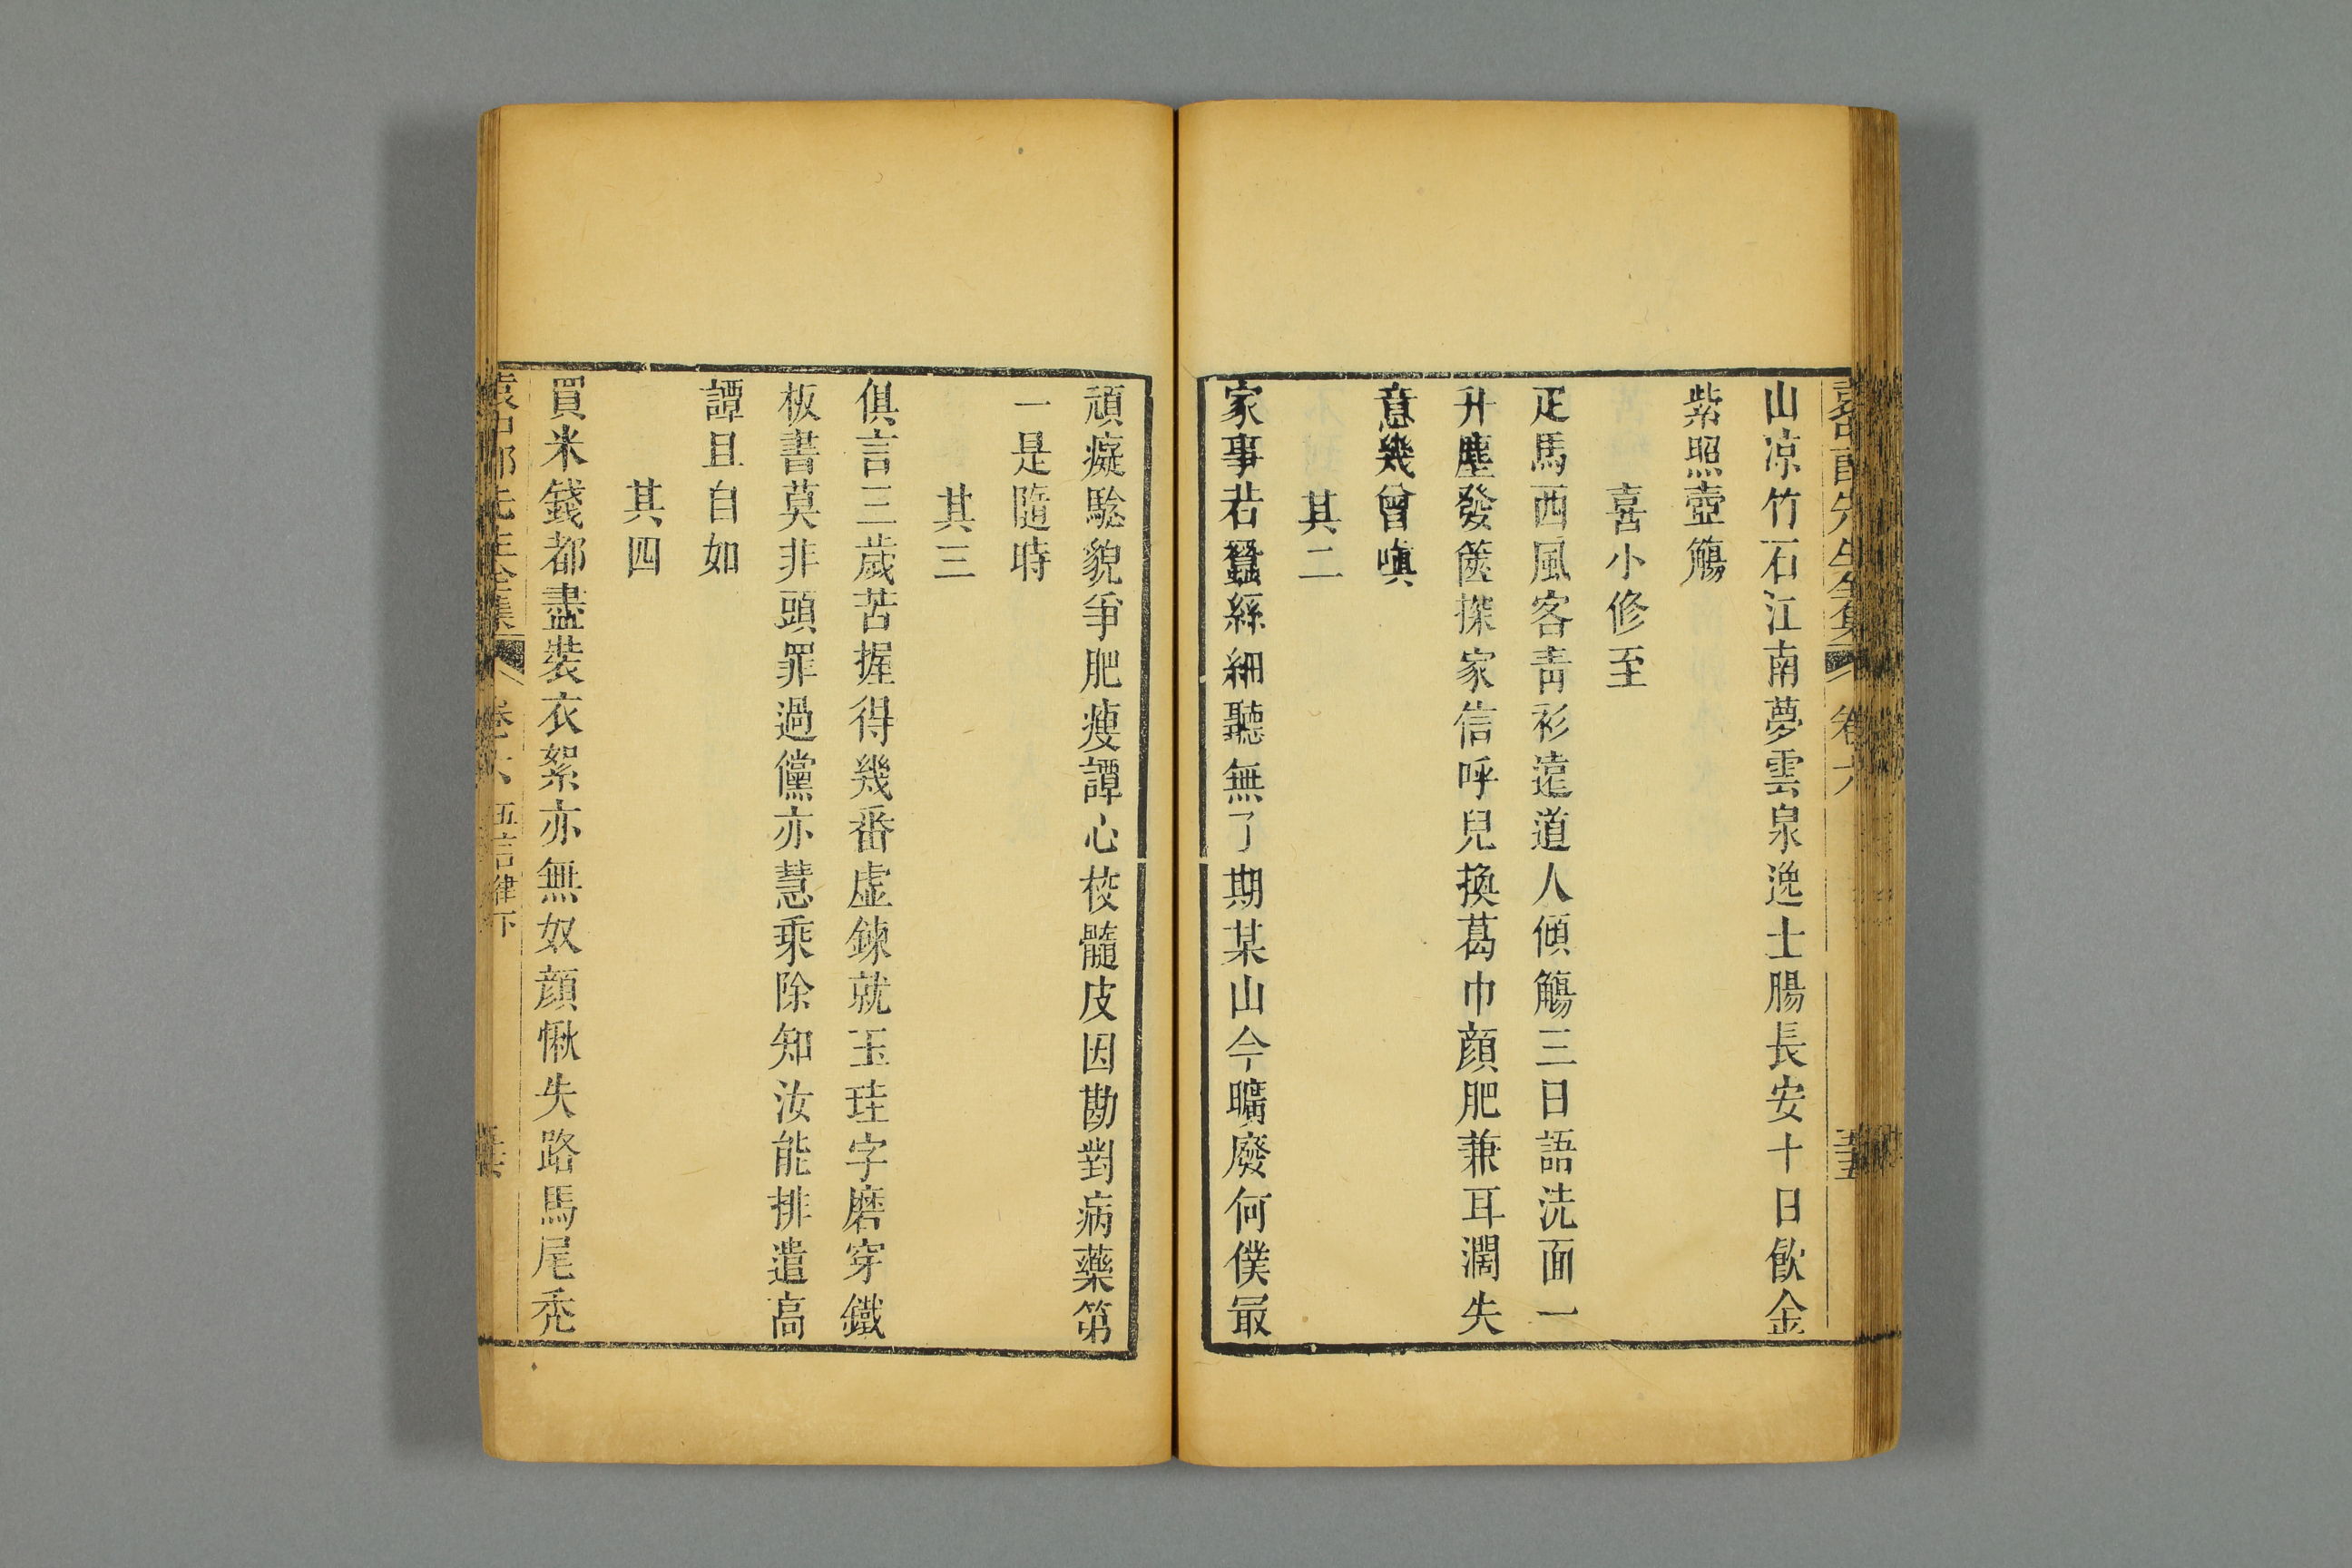 山凉竹石江南夢雲泉逸士腸長安十日飮金
紫照壺觴
喜小修至
疋馬西風客靑衫遠道人傾觴三日語洗面一
升塵發篋探家信呼兒換葛巾顔肥兼耳濶失
意幾曾嗔
其二
家事若蠶絲細聽無了期某山今曠廢何僕最
頑癡驗貌爭肥瘦譚心校髓皮因勘對病藥第
一是隨時
其三
俱言三歲苦握得幾番虛鍊就玉珪字磨穿鐵
板書莫非頭罪過儻亦慧乘除知汝能排遣高
譚且自如
其四
買米錢都盡裝衣絮亦無奴顔愀失路馬尾禿
袁中郎先生全集 卷六 五言律下